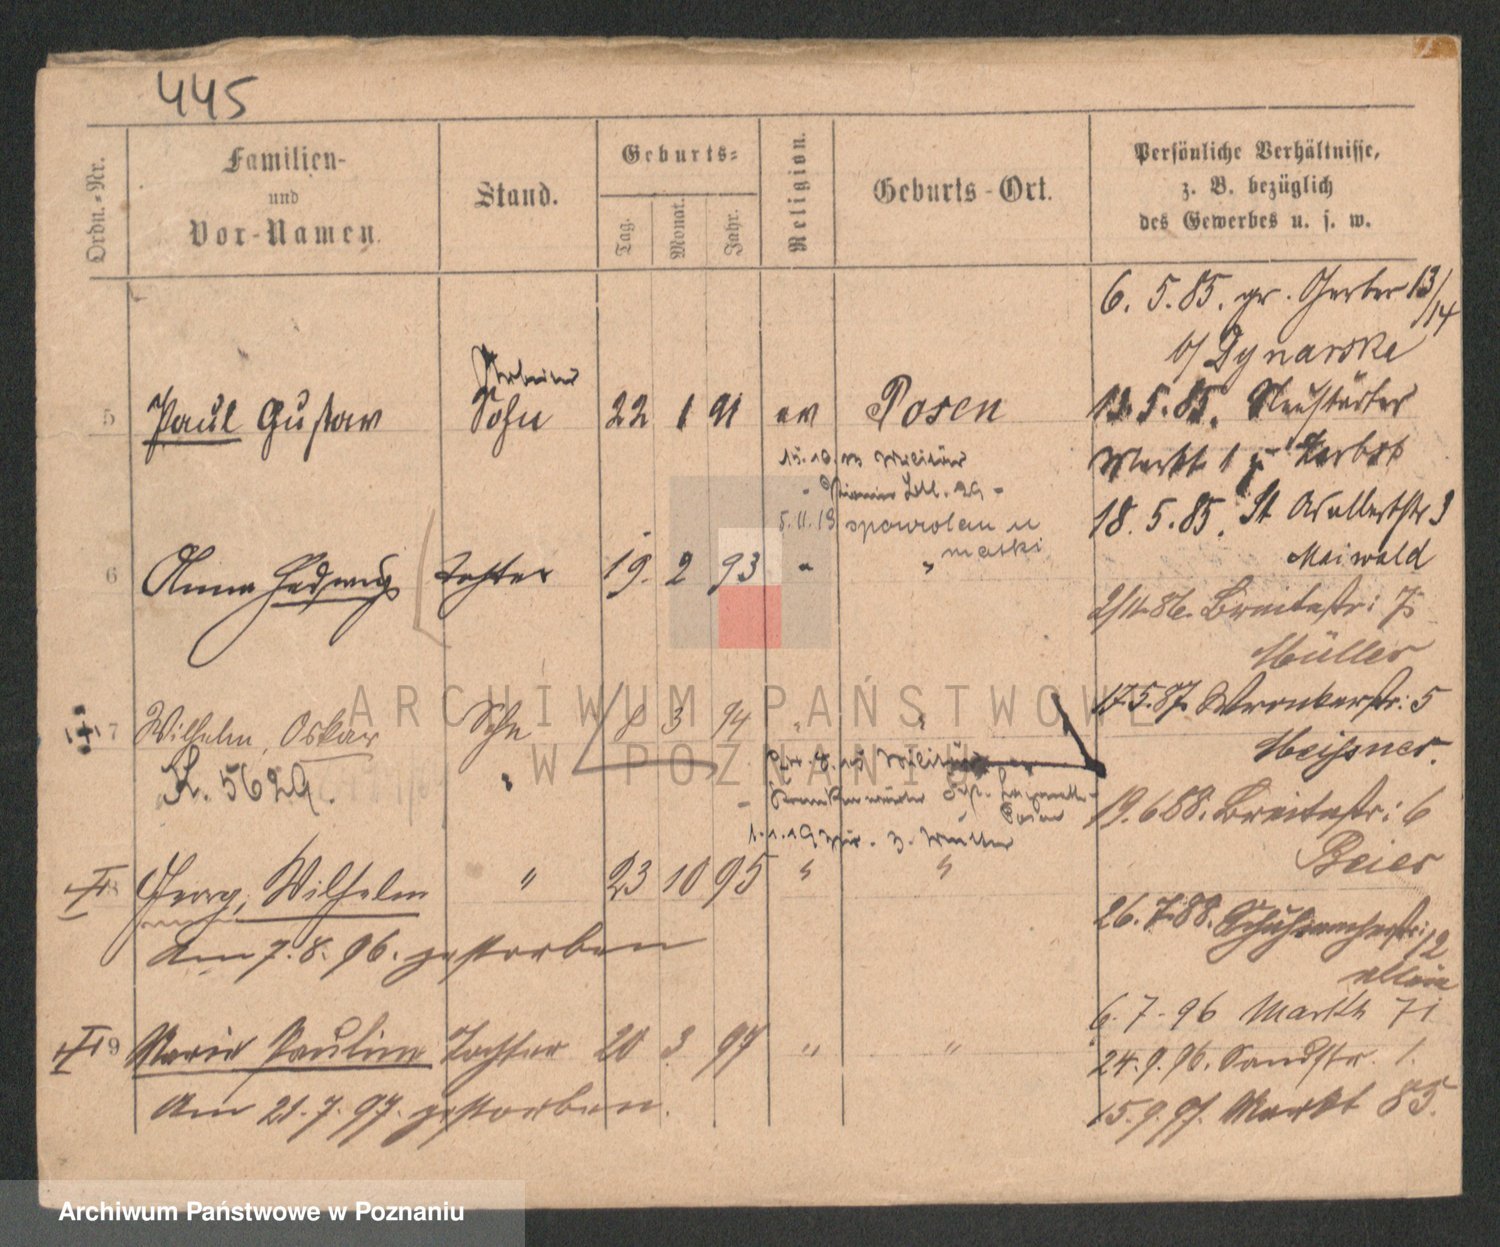 445
Ordn.-Nr.
Familien-
und
Vor-Namen.
Stand.
Geburts-
Tag.
Monat.
Jahr.
Religion.
Geburts-Ort.
Persönliche Verhältnisse,
z. B. bezüglich
des Gewerbes u. s. w.
6. 5. 85. gr. Gerber 13/14
b/ Dynarske
5 Paul Gustav Sohn 22 1 91 ev Posen
13. 5. 85. Neustädter
Markt 1 Herbst
Militär
18. 5. 85. St Adalbertstr 3
5.11.18 spowrotem u
matki
Maiwald
6 Anna Hedwig Tochter 19. 2 93 " "
2/11.86. Breitestr: 7
Müller
7 Wilhelm, Oskar Sohn 8 3 94 " "
17.5.87. Wronkerstr: 5
K. 5629.
"
Militär
Meissner.
19.6.88. Breitestr: 6
Beier
8 Georg, Wilhelm " 23 10 95 " "
26. 7. 88. Schuhmacherstr: 12
am 7. 8. 96. gestorben
allein
6. 7. 96 Markt 71
9 Marie Pauline Tochter 20 3 97 " "
24. 9. 96. Sandstr. 1.
am 21. 7. 97. gestorben.
15. 9. 97. Markt 85.
ARCHIWUM PAŃSTWOWE
W POZNANIU
Archiwum Państwowe w Poznaniu